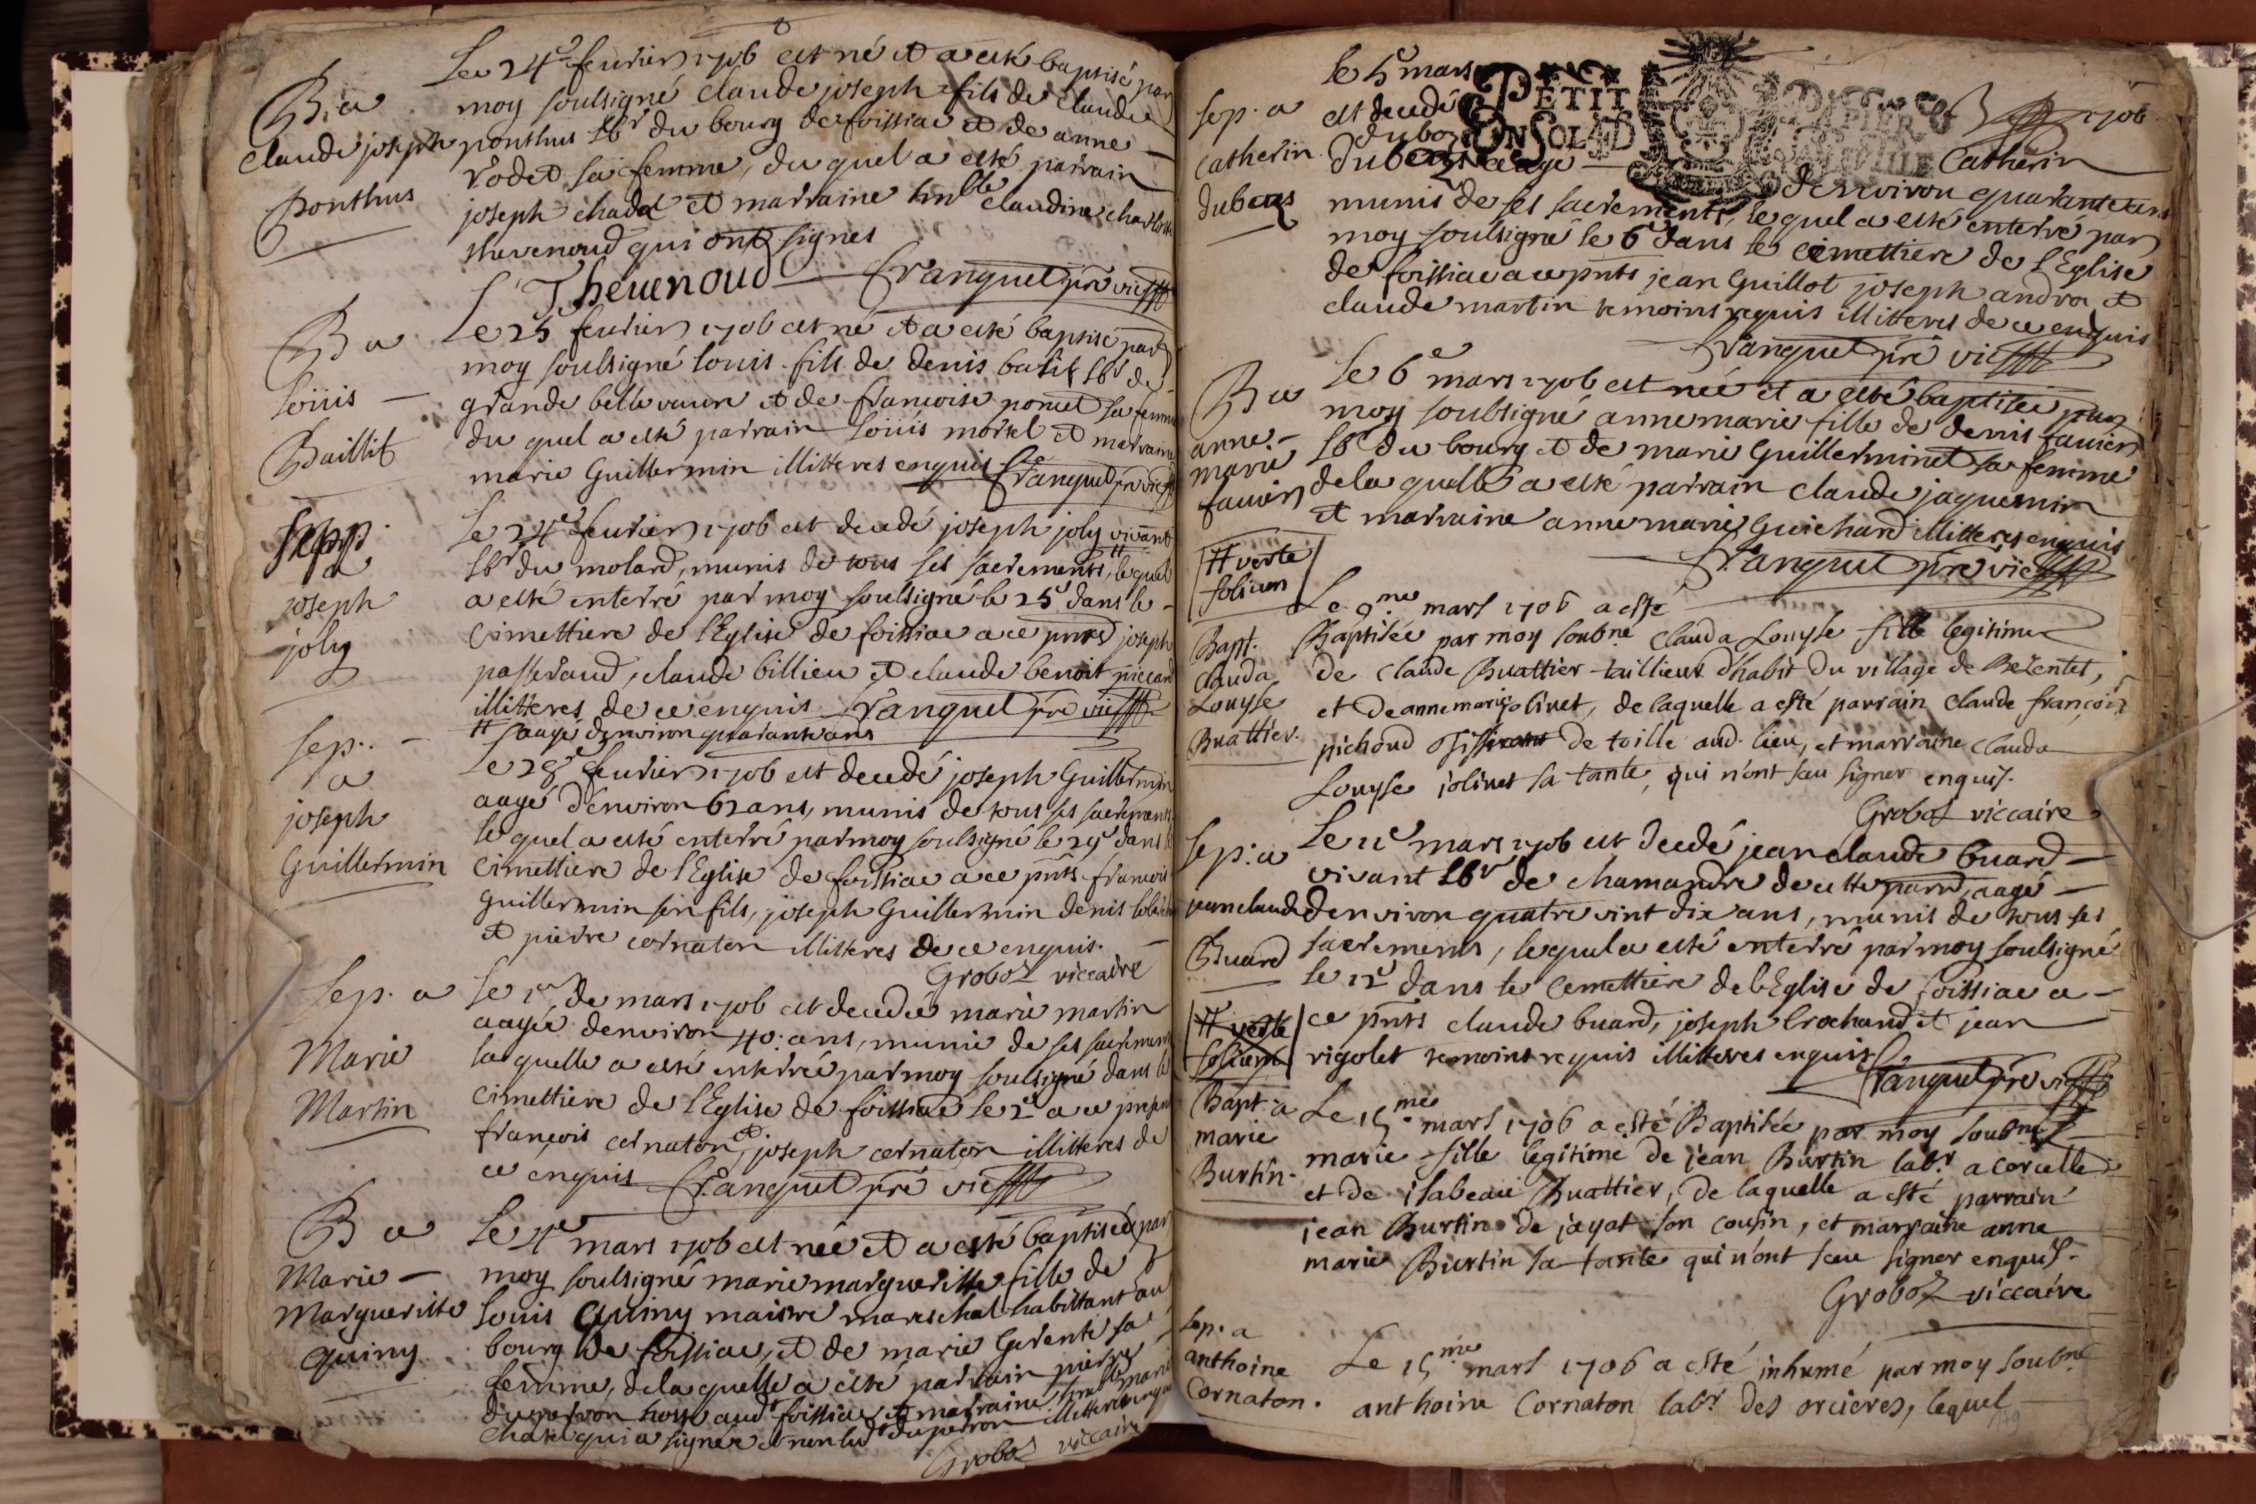 Le 24e feurier 1706 est né et a esté baptisé par
B. a
moy soulsigné claude joseph fils de claude
claude joseph
ponthus lbr du bourg de foissia et de anne
rodet sa femme, du quel a esté parrain
ponthus
joseph chadal et marraine claudine charlotte
thevenoud qui ont signes
Theuenoud franquet pre vic
B a
Le 25 feurier 1706 est né et a esté baptisé par
moy soulsigné louis fils de denis lbr de
Loüis
grande belle vaure et de francoise poncet sa femme
du quel a esté parrain Loüis morel et marraine
Baillit
marie Guillermin illitteres enquis franquet pre vic
Sep.
a
joseph
joly
Le 24e feurier 1706 est decedé joseph joly vivant
lbr du molard, munis de tous ses sacrements, # lequel
a esté enterré par moy soulsigné le 25e dans le
cimettiere de l'Eglise de foissia a ce pnts joseph
passeraud, claude billieu et claude benoit piccard
illitteres de ce enquis franquet pre vic
# aagé d'environ quarante ans
Sep.
a
joseph
Guillermin
Le 28e feurier 1706 est decedé joseph Guillermin
aagé d'environ 62 ans, munis de tous ses sacrements
le quel a esté enterré par moy soulsigné le 29e dans le
cimettiere de l'Eglise de foissia a ce pnts francois
Guillermin son fils, joseph Guillermin denis
et pierre cornaton illitteres de ce enquis.
Groboz viccaire
Sep. a
Marie
Martin
Le 1er de mars 1706 est decedée marie martin
aagée denviron 40. ans, munie de ses sacrements
la quelle a esté enterrée par moy soulsigné dans le
cimettiere de l'Eglise de foissia le 2e a ce presents
françois cornaton et joseph cornaton illitteres de
ce enquis franquet pre vic
B a
Marie
Margueritte
Quiny
Le 4e mars 1706 est née et a esté baptisée par
moy soulsigné marie margueritte fille de
Louis Quiny maistre mareschal habittant au
bourg de foissia, et de marie Gerente sa
femme, de la quelle a esté parrain pierre
duperron hoste aud foissia et marraine marie
chatel qui a signée et non led duperron illittere enquis
Groboz viccaire
Sep. a
catherin
dubois
le 5e mars 1706
PETIT PAPIER
CONSOLAD
est decedé Catherin
dubois aagé denviron quarante ans
munis de ses sacrements, le quel a esté enterré par
moy soulsigné le 6e dans le cimettiere de l'Eglise
de foissia a ce pnts jean Guillot joseph andra et
claude martin temoins requis illitteres de ce enquis
franquet pre vic
B a
anne
marie
fauier
Le 6e mars 1706 est née et a esté baptisée par
moy soubsigné anne marie fille de denis fauier
lbr du bourg et de marie Guillerminet sa femme
de la quelle a esté parrain claude jaquemin
et marraine anne marie Guichard illitteres enquis
franquet pre vic
# verte
folium
Bapt.
Clauda
Louyse
Buattier.
Le 9.me mars 1706 a esté
Baptisée par moy soubne Clauda Louyse fille legitime
de Claude Buattier taillieur dhabit du village de Bezentet,
et de anne marie jolinet, de laquelle a esté parrain Claude françois
pichoud tissirant de toille aud. lieu, et marraine Clauda
Louyse jolinet sa tante, qui n'ont sceu signer enquis.
Groboz viccaire
Sep: a
jean claude
Buard
Le 11e mars 1706 est decedé jean claude buard
vivant lbr de chamandre de cette parr, aagé
denviron quatre vint dix ans, munis de tous ses
sacrements, lequel a esté enterré par moy soulsigné
le 12e dans le cemettiere de l'Eglise de foissia a
ce pnts claude buard, joseph Crochaud et jean
rigolet temoins requis illitteres enquis
franquet pre vic
# verte
folium
Bapt. a
marie
Burtin.
Le 15.me mars 1706 a esté Baptisée par moy soubne
marie fille legitime de jean Burtin labr. a corcelle
et de isabeau Buattier, de laquelle a esté parrain
jean Burtin de jayat son cousin, et marraine anne
marie Burtin sa tante qui n'ont sceu signer enquis.
Groboz viccaire
Sep. a
anthoine
Cornaton.
Le 15.me mars 1706 a esté inhumé par moy soubne
anthoine Cornaton labr. des orcieres, lequel